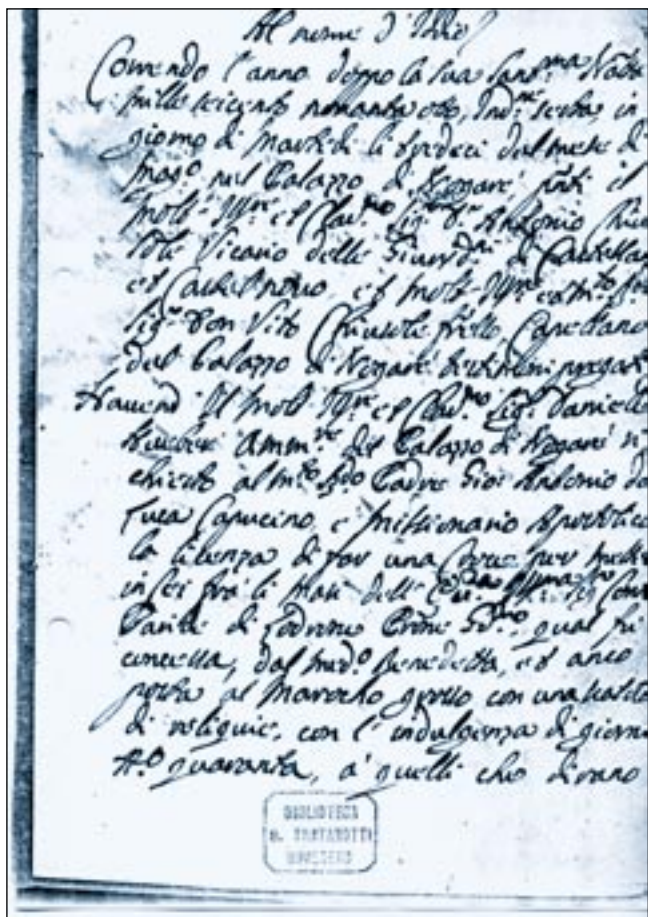 Al nome d'Iddio
Correndo l'anno doppo la sua Sant.ma Nati
mille seicento nonanta otto, Ind.ne sesta, in
giorno di Martedi li tredeci dal mese di
mag.o nel Palazzo di Nogarè, p̃nti il
molt' Ill're et Clar.mo Sig.r D.r Antonio Chiu
sole Vicario delle Giurisd.ni di Castellan
et Castelnovo, et molt' Ill're
Sig.r Don Vito Chiusole Capellano
del Palazzo di Nogarè pregati
Havend' Il molt' Ill're et Clar.mo Sig.r Daniele
Amm.re del Palazzo di Nogarè ri
chiesto al m.to R.do Padre Gio: Antonio da
Capucino, e Missionario Apostolico
la licenza di far una Croce per metter
in sei frà li
di Lodrone qual fù
concessa, dal med.o benedetta, et anco
posta al Marocho grosso con una
di reliquie, con l'indulgenza di giorni
n.o quaranta, a' quelli che dirano
BIBLIOTECA
G. TARTAROTTI
ROVERETO